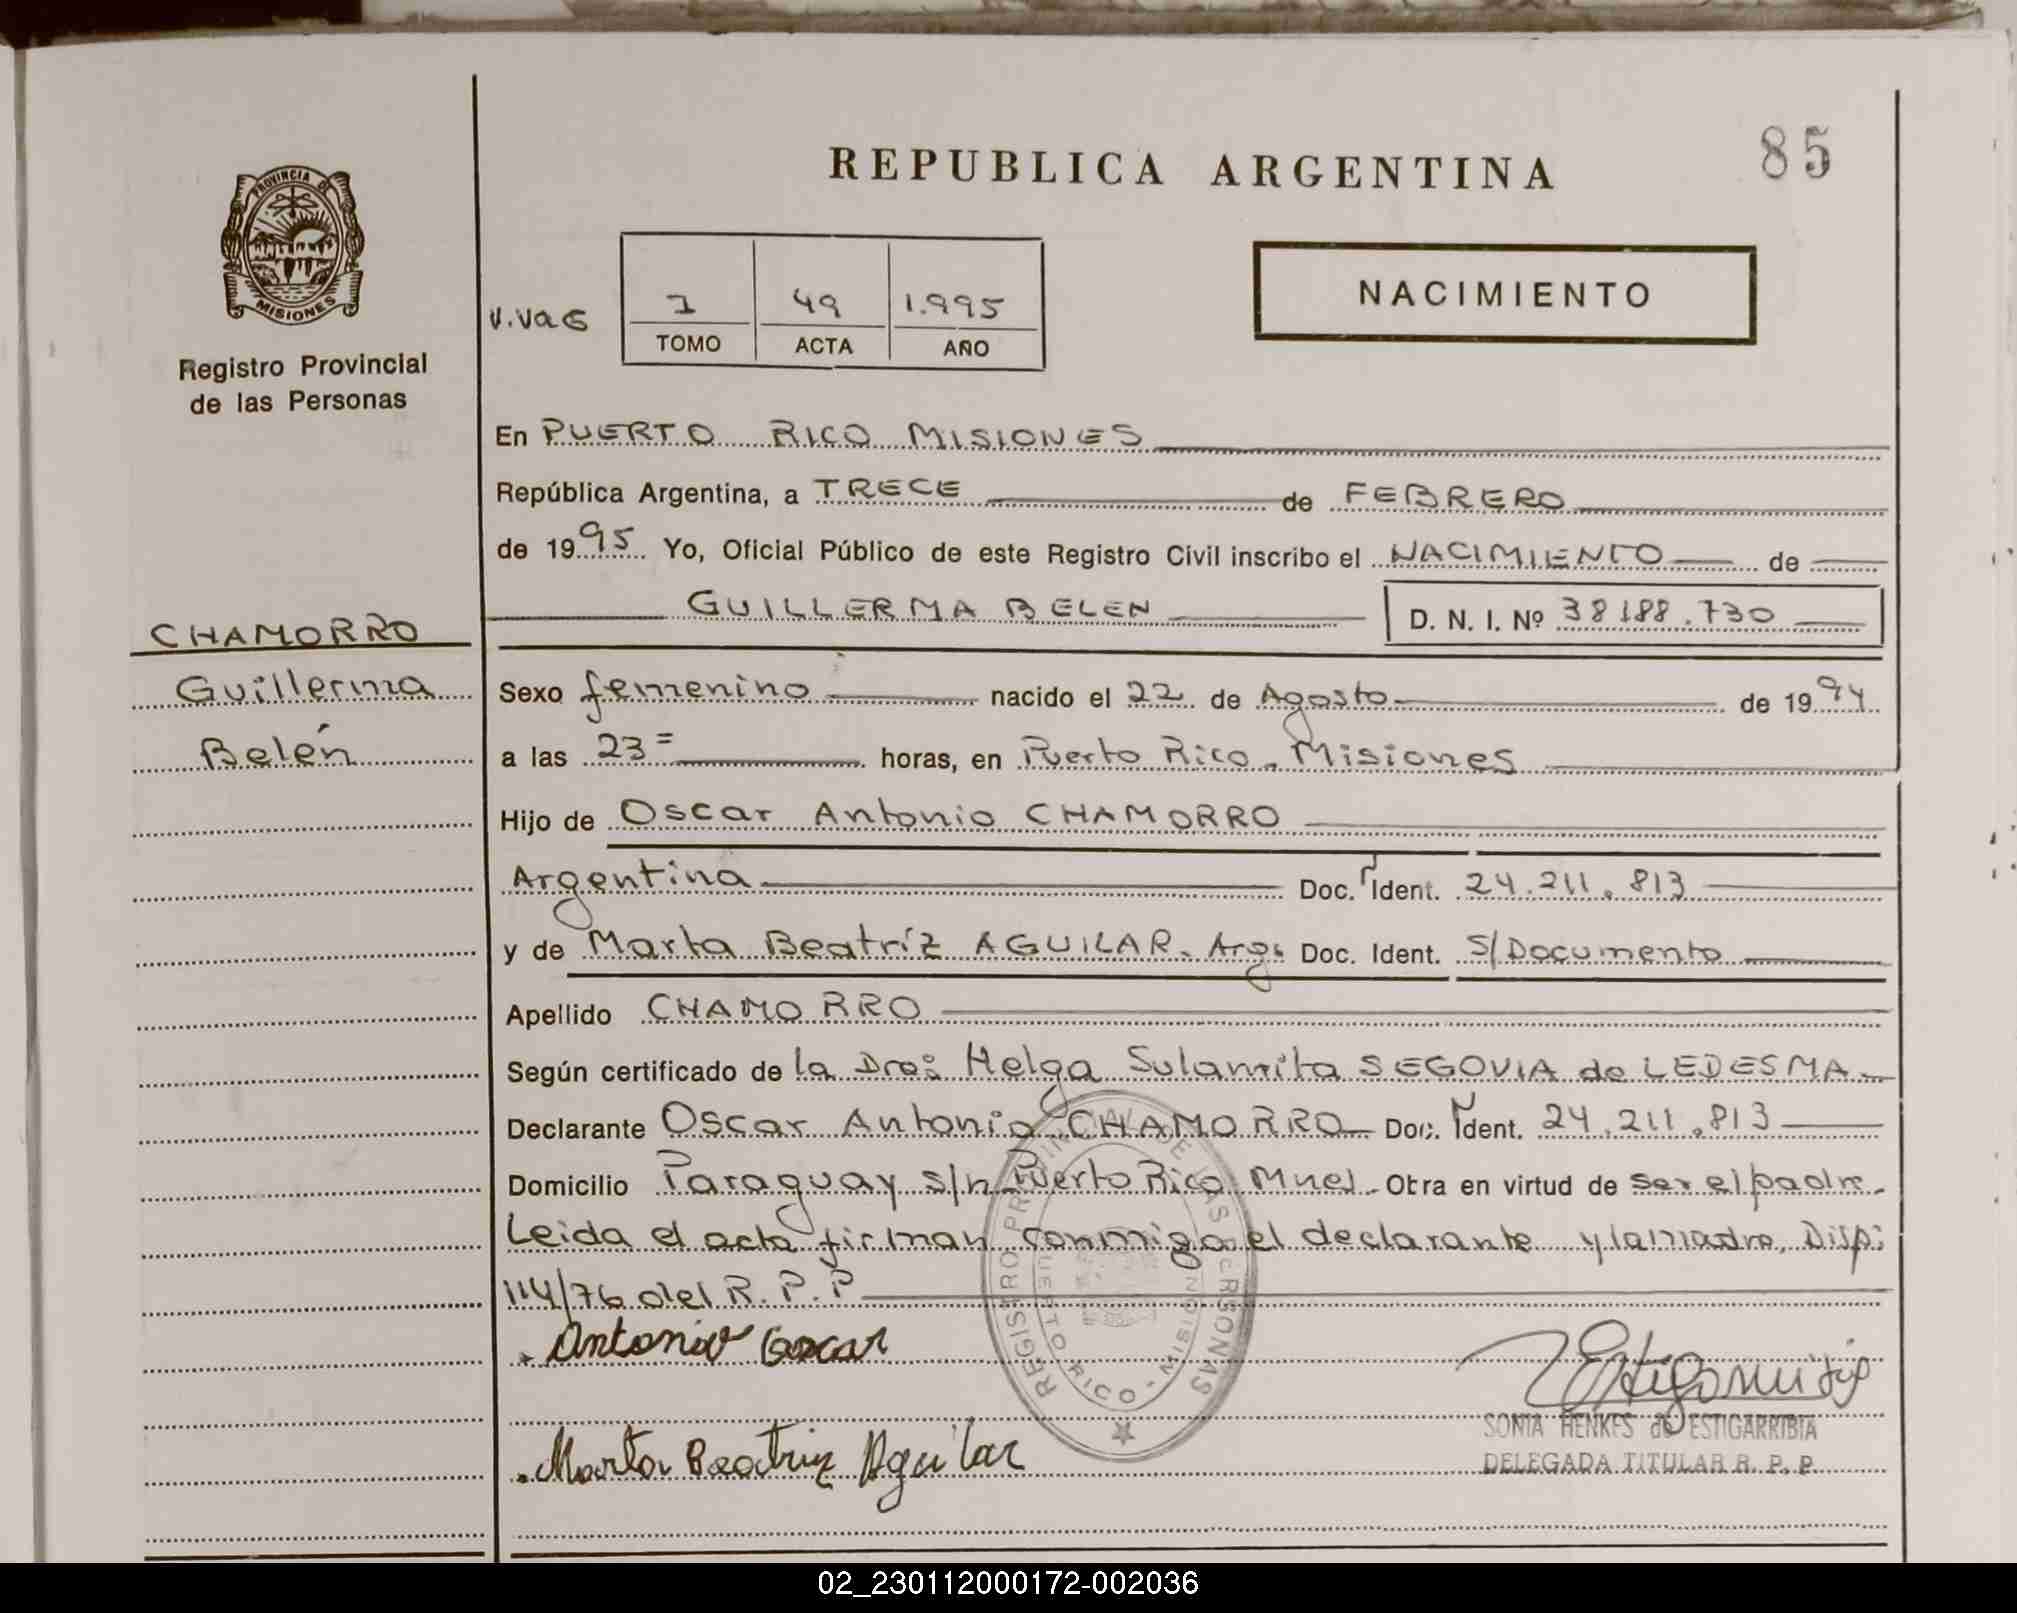 85
REPUBLICA ARGENTINA
PROVINCIA DE
MISIONES
Registro Provincial
de las Personas
NACIMIENTO
V.Vas 1 49 1.995
TOMO ACTA AÑO
En PUERTO RICO MISIONES
República Argentina, a TRECE de FEBRERO
de 1995 Yo, Oficial Público de este Registro Civil inscribo el NACIMIENTO de
GUILLERMA BELEN D. N. I. Nº 38188.730
CHAMORRO
Guillerma
Belén
Sexo femenino nacido el 22 de Agosto de 1994
a las 23= horas, en Puerto Rico. Misiones
Hijo de Oscar Antonio CHAMORRO
Argentina Doc. Ident. 24.211.813
y de Marta Beatríz AGUILAR. Arg: Doc. Ident. S/Documento
Apellido CHAMORRO
Según certificado de la Dra: Helga Sulamita SEGOVIA de LEDESMA
Declarante Oscar Antonio CHAMORRO Doc. Ident. 24.211.813
Domicilio Paraguay s/n Puerto Rico Mnes. Obra en virtud de ser el padre.
Leida el acta firman conmigo el declarante y la madre, Disp:
114/76 del R.P.P
Antonio Oscar
REGISTRO PROVINCIAL DE LAS PERSONAS
PUERTO RICO - MISIONES
SONIA HENKES de ESTIGARRIBIA
DELEGADA TITULAR R. P. P.
Marta Beatriz Aguilar
02_230112000172-002036